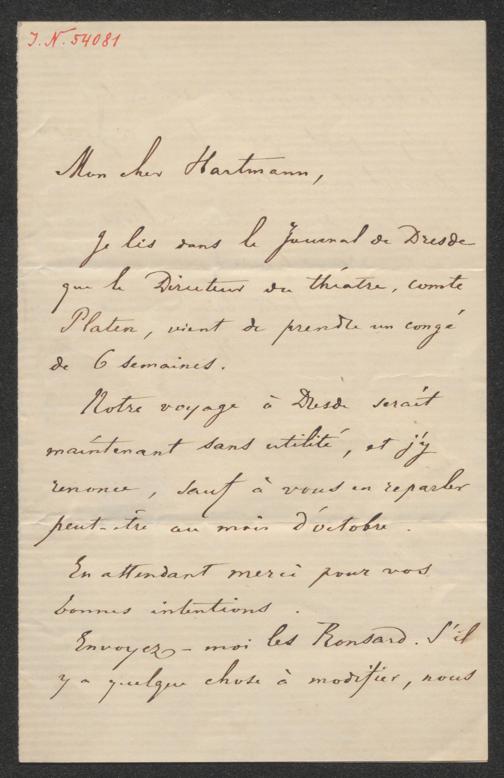 J. N. 54081
Mon cher Hartmann,
Je lis dans le Journal de Dresde
que le Directeur du théatre, comte
Platen, vient de prendre un congé
de 6 semaines.
Notre voyage à Dresde serait
maintenant sans utilité, et j'y
renonce, sauf à vous en reparler
peut-être au mois d'octobre.
En attendant merci pour vos
bonnes intentions.
Envoyez-moi les Ronsard. S'il
y a quelque chose à modifier, nous